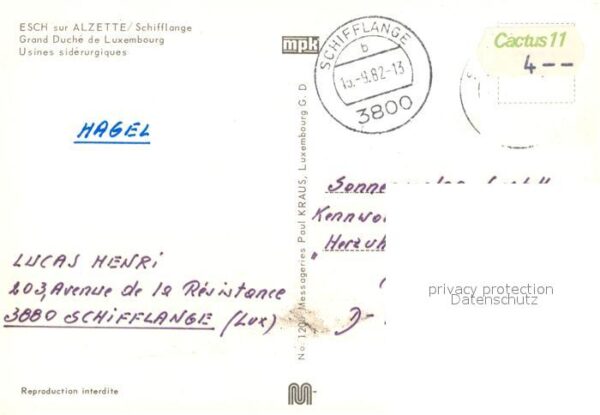 ESCH sur ALZETTE/Schifflange
Grand Duché de Luxembourg
Usines sidérurgiques
mpk
SCHIFFLANGE
b
15.-9.82-13
3800
Cactus 11
4--
HAGEL
Kennwo
"Herzuh
LUCAS HENRI
203, Avenue de la Résistance
3880 SCHIFFLANGE (Lux)
D-
No. 1208 Messageries Paul KRAUS, Luxembourg G. D
privacy protection
Datenschutz
Reproduction interdite
M